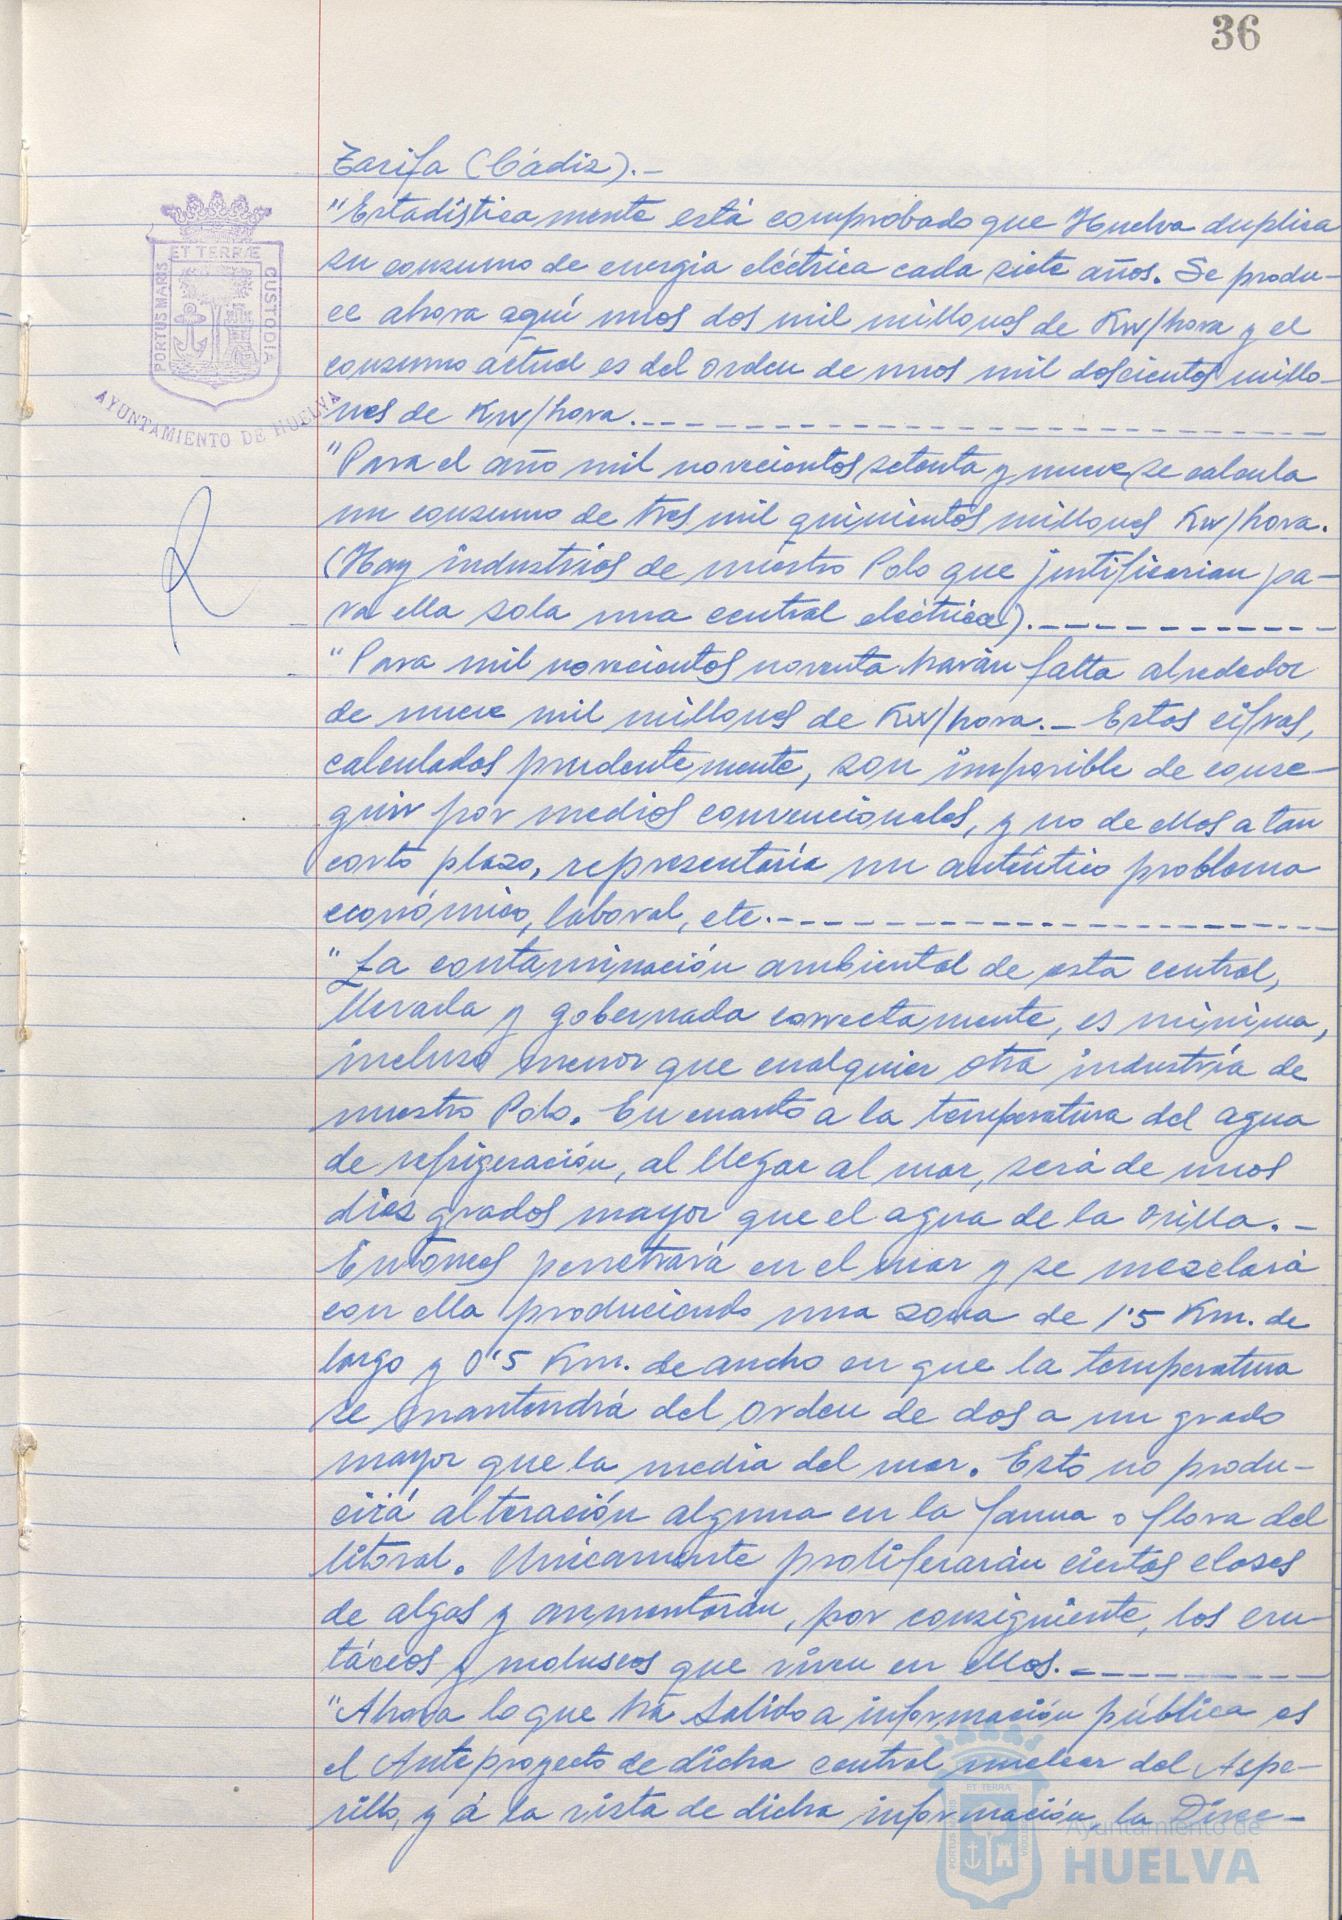 36
Tarifa (Cádiz).-
"Estadísticamente está comprobado que Huelva duplica
su consumo de energia eléctrica cada siete años. Se produ-
ce ahora aquí unos dos mil millones de Kw/hora y el
consumo actual es del orden de unos mil doscientos millo-
nes de Kw/hora.
"Para el año mil novecientos setenta y nueve, se calcula
un consumo de tres mil quinientos millones Kw/hora.
(Hay industrias de nuestro Polo que justificarian pa-
ra ella sola una central eléctrica).
"Para mil novecientos noventa harán falta alrededor
de nueve mil millones de Kw/hora.- Estas cifras,
calculadas prudentemente, son imposible de conse-
guir por medios convencionales, y no de ellos a tan
corto plazo, representaría un auténtico problema
económico, laboral, etc.
"La contaminación ambiental de esta central,
llevada y gobernada correctamente, es mínima,
incluso menor que cualquier otra industria de
nuestro Polo. En cuanto a la temperatura del agua
de refrigeración, al llegar al mar, será de unos
diez grados mayor que el agua de la orilla.-
Entonces penetrará en el mar y se mezclará
con ella produciendo una zona de 1'5 Km. de
largo y 0'5 Km. de ancho en que la temperatura
se mantendrá del orden de dos a un grado
mayor que la media del mar. Esto no produ-
cirá alteración alguna en la fauna o flora del
litoral. Unicamente proliferarán ciertas clases
de algas y aumentarán, por consiguiente, los crus-
táceos y moluscos que viven en ellas.
"Ahora lo que ha salido a información pública es
el Anteproyecto de dicha central nuclear del Aspe-
rillo, y á la vista de dicha información, la Direc-
PORTUS MARIS
ET TERRÆ
CUSTODIA
AYUNTAMIENTO DE HUELVA
Ayuntamiento de
HUELVA